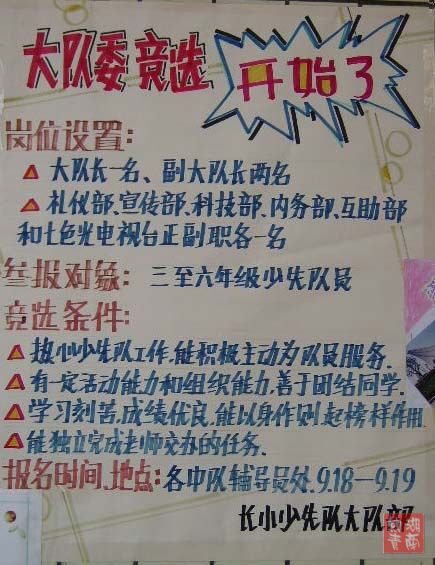 大队委竞选
开始了
岗位设置:
大队长一名、副大队长两名
礼仪部、宣传部、科技部、内务部、互助部
和七色光电视台正副职各一名
参报对象: 三至六年级少先队员
竞选条件:
热心少先队工作,能积极主动为队员服务.
有一定活动能力和组织能力,善于团结同学.
学习刻苦,成绩优良,能以身作则,起榜样作用.
能独立完成老师交办的任务.
报名时间、地点: 各中队辅导员处.9.18—9.19
长小少先队大队部